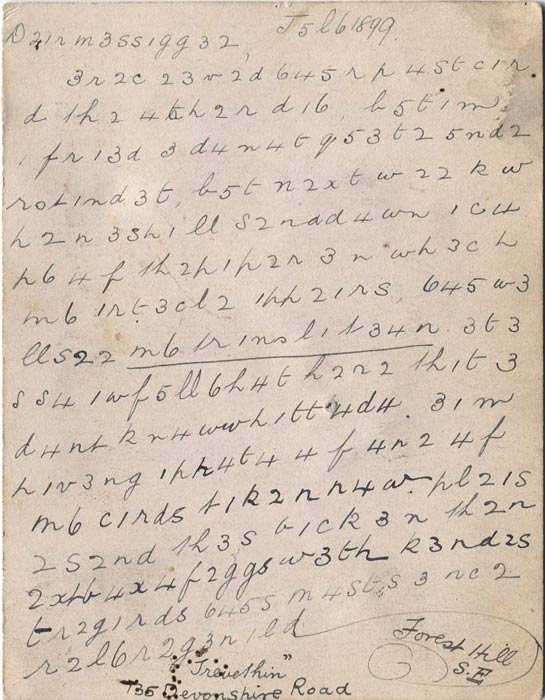 D21r m3ss1gg32, J5l61899
3r2c23v2d 645rp4stc1r
d th2 4th2r d16, b5t1m
1fr13d 3d4n4t q53t25nd2
rst1nd3t, b5t n2xt w22kw
h2n3sh1ll s2ndd4wn 1c4
p64f th2p1p2r3n wh3ch
m61rt3cl2 1pp21rs, 645w3
lls22 m6tr1nsl1t34n. 3t3
ss41wf5ll6h4t h2r2 th1t3
d4nt kn4wwh1tt4d4. 31m
h1v3ng 1ph4t44f 4n24f
m6c1rds t1k2nn4w. pl21s
2s2nd th3s b1ck3n th2n
2xtb4x4f2ggs w3th k3nd2s
tr2g1rds 645s m4st s3nc2
r2l6r2g3n1ld
Forest Hill
S.E
"Trevethin"
135 Devonshire Road